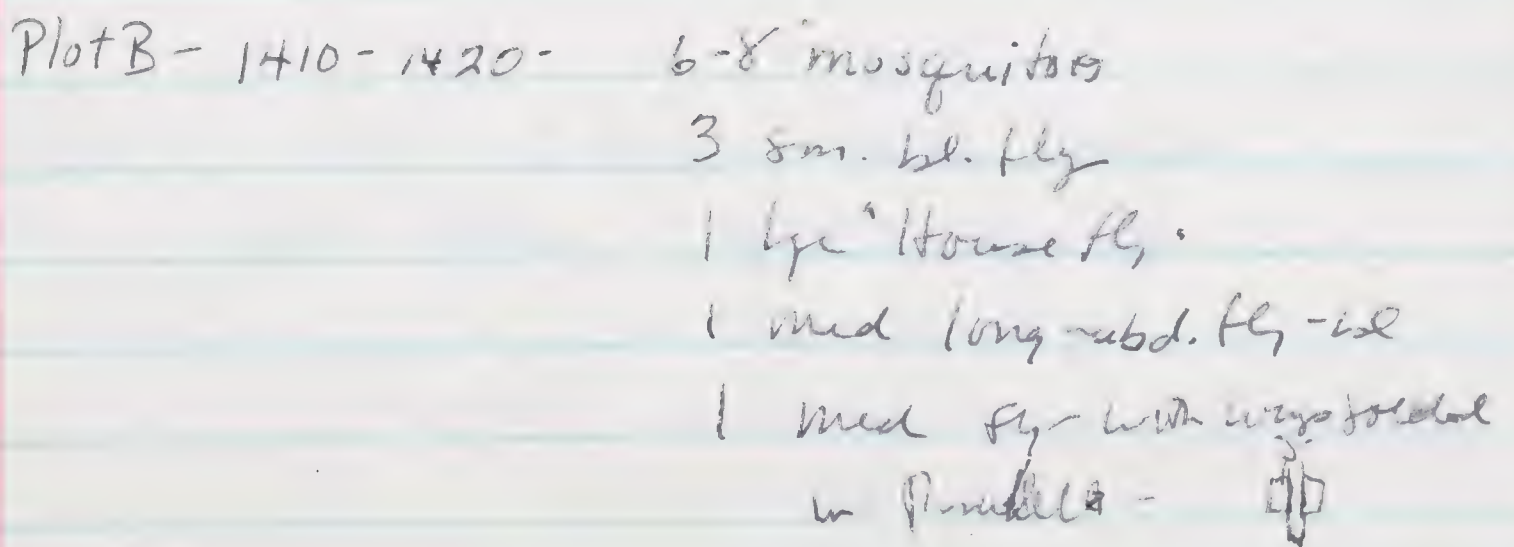 Plot B - 1410 - 1420 - 6-8 mosquitoes
3 sm. bl. fly
1 lge "House fly"
1 med long-abd. fly - bl
1 med fly - with wngs folded
in